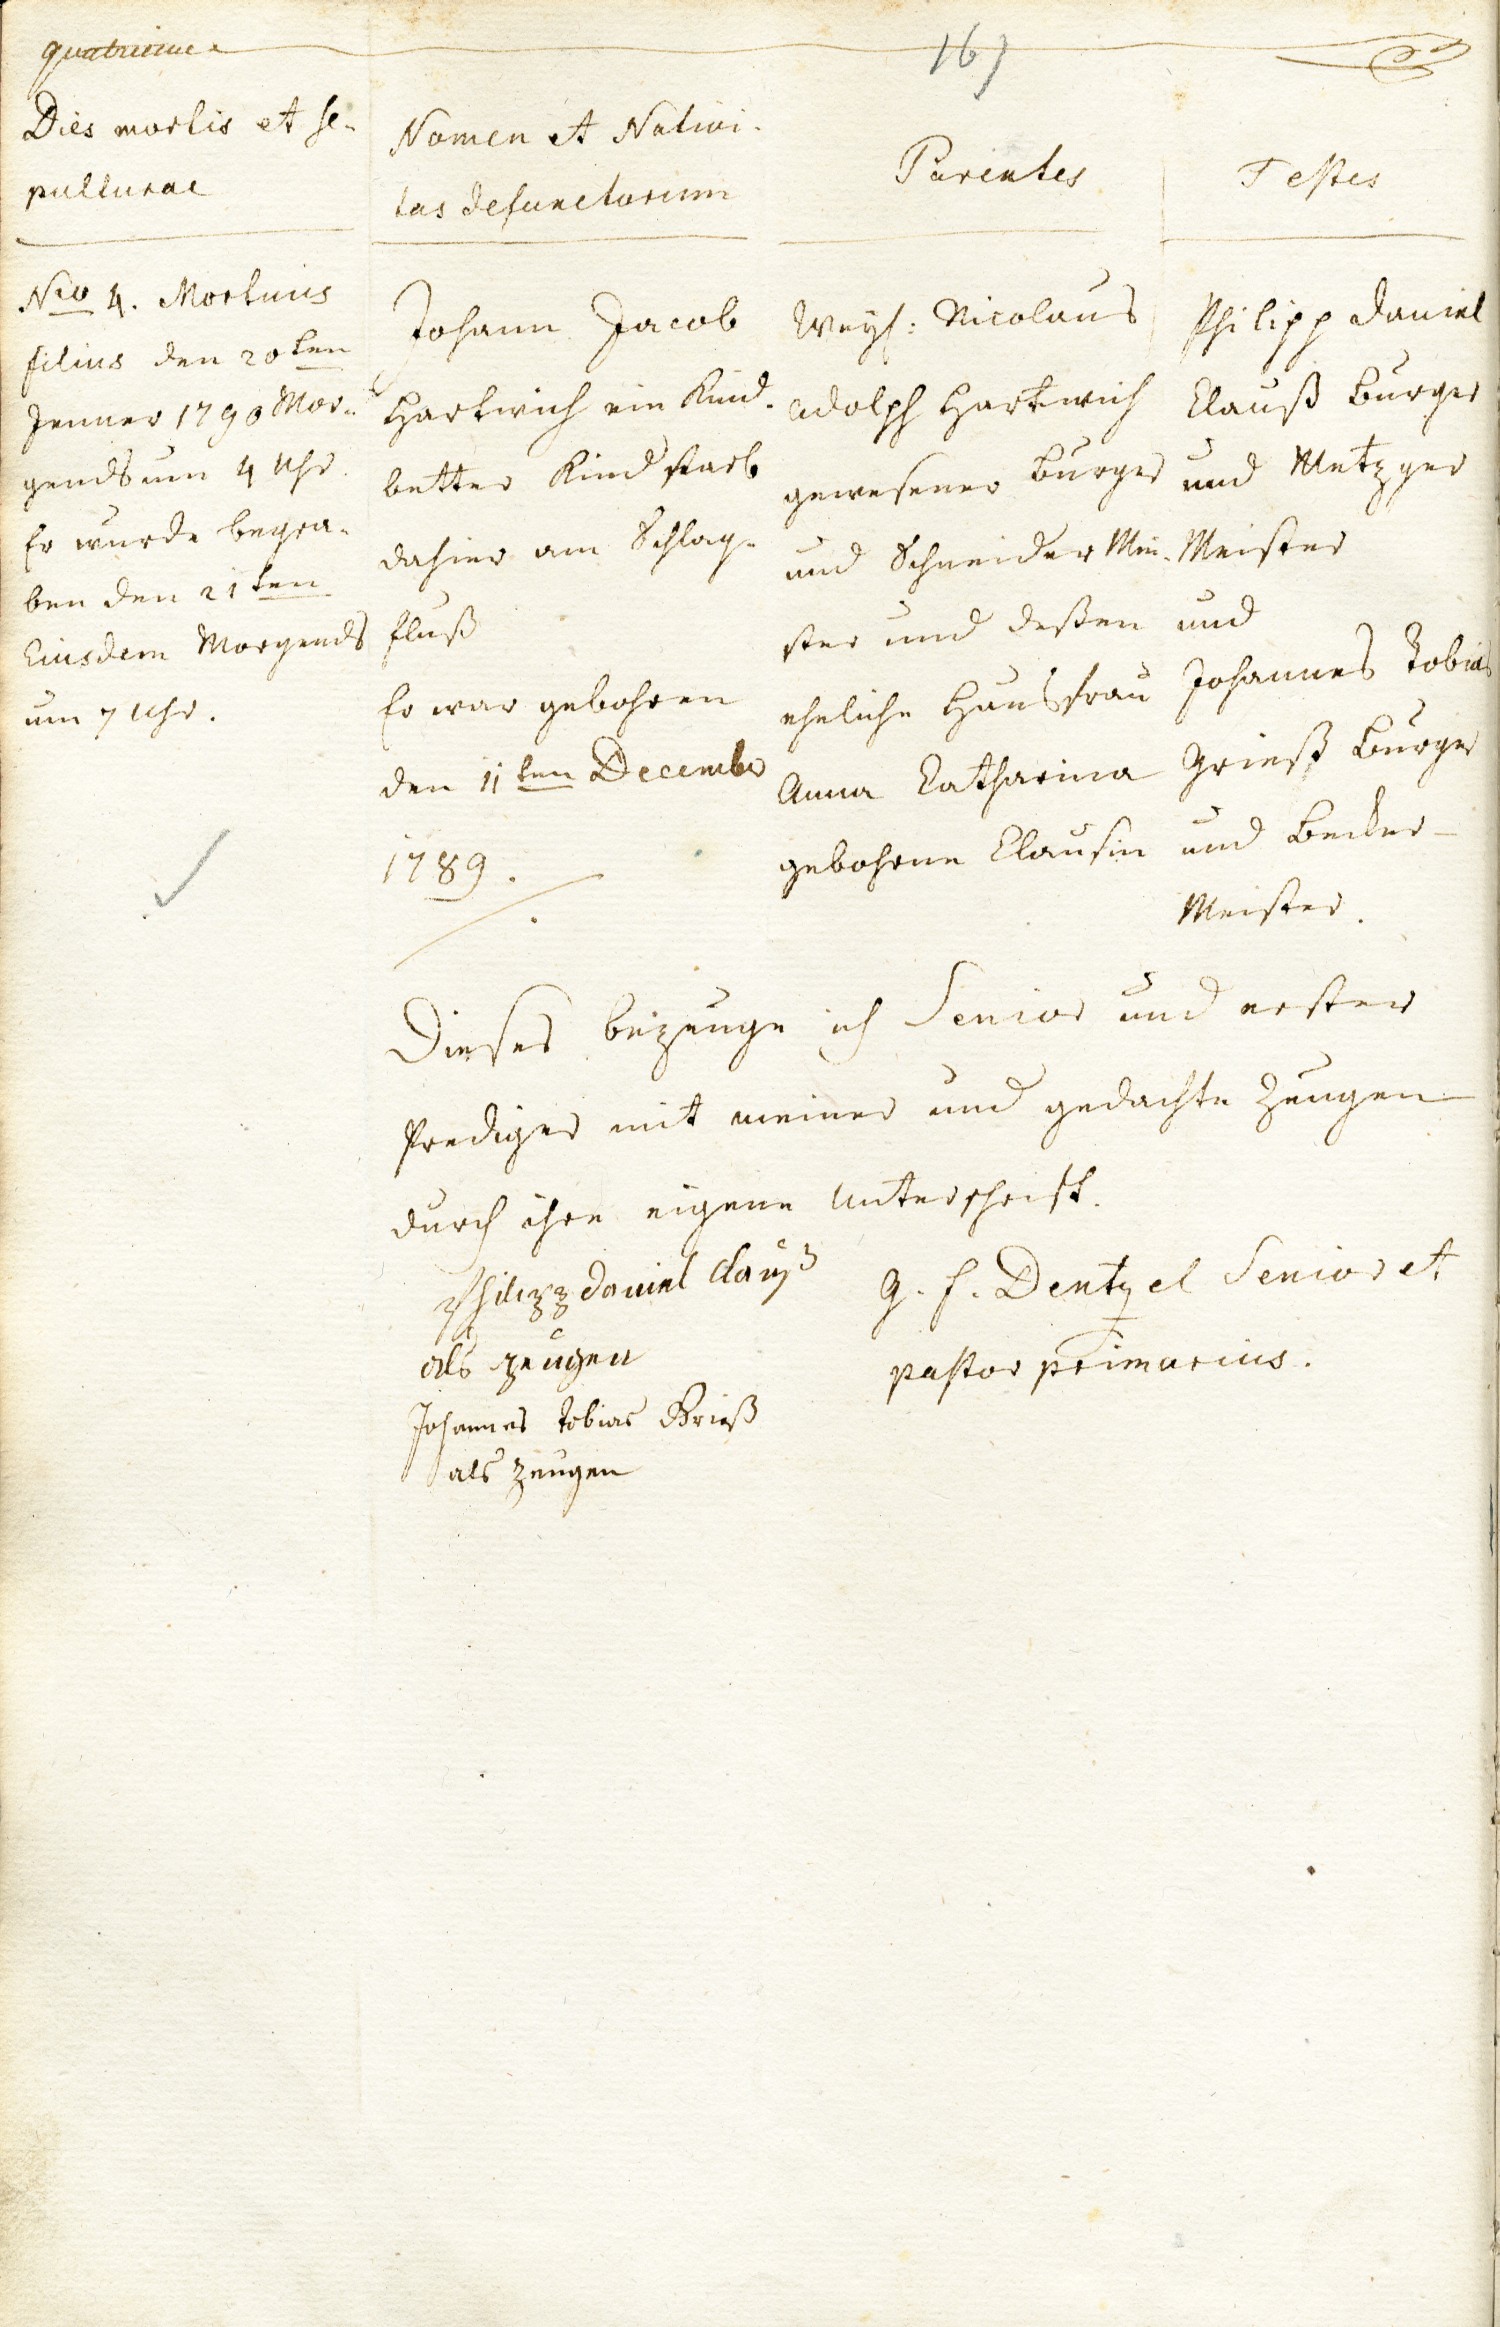 167
Dies mortis et se-
pulturae
Nomen et Nativi-
tas defunctorum
Parentes
Testes
Nro 4. Mortuus
filius den 20ten
Jenner 1790 Mor-
gends um 4 Uhr
Er wurde begra-
ben den 21ten
Eiusdem Morgends
um 7 Uhr.
Johann Jacob
Hartwich ein Kind-
better Kind starb
dahier am Schlag-
fluß
Er war gebohren
den 11ten Decembr
1789.
Weyl: Nicolaus
Adolph Hartwich
gewesener Burger
und Schneider Mei-
ster und deßen
eheliche Hausfrau
Anna Catharina
gebohrne Clausin
Philipp Daniel
Clauß Burger
und Metzger
Meister
und
Johannes Tobias
Grieß Burger
und Becker-
Meister.
Dieses bezeuge ich Senior und erster
Prediger mit meiner und gedachte Zeugen
durch ihre eigene Unterschrift.
Philipp Daniel Clauß
als zeugen
Johannes Tobias Grieß
als zeugen
G. F. Dentzel Senior et
pastor primarius.